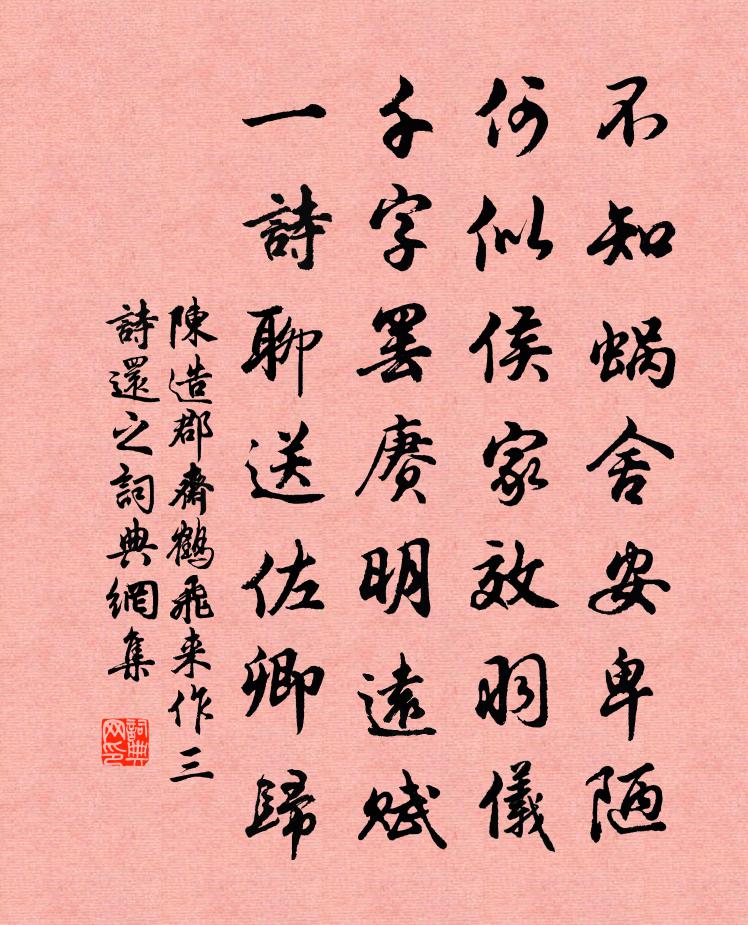 不知蜗舍安卑陋
何似侯家效羽儀
千字罢赓明遠赋
一詩聊送佐卿歸
陳造郡齋鶴飛来作三
詩還之詞典網集
詞典
网印